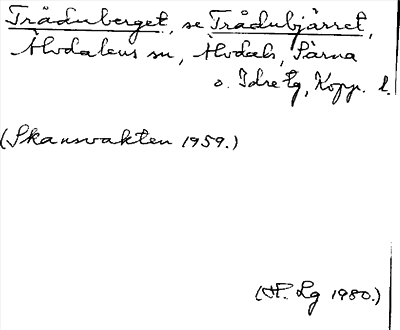 Trådnberget, se Trådnbjärret,
Älvdalens sn, Älvdals, Särna
o. Idre tg, Kopp. l.
(Skansvakten 1959.)
(H. Lg 1980.)